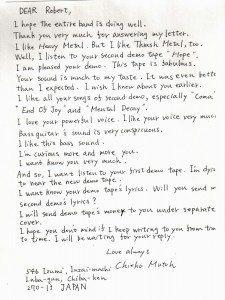 DEAR Robert,
I hope the entire band is doing well.
Thank you very much for answering my letter.
I like Heavy Metal. But I like Thrash Metal, too.
Well, I listen to your second demo tape "Hope".
I am pleased your demo. This tape is fabulous.
Your sound is much to my taste. It was even better
than I expected. I wish I know about you earlier.
I like all your songs of second demo, especially "Coma"
"End Of Joy" and "Mental Decay".
I love your powerful voice. I like your voice very much.
Bass guitar's sound is very conspicuous.
I like this bass sound.
I'm curious more and more you.
I want know you very much.
And so, I want listen to your first demo tape. I'm dyin
to hear the new demo tape.
I want know your demo tape's lyrics. Will you send me
second demo's lyrics?
I will send demo tape's money to you under separate
cover.
I hope you don't mind if I keep writing to you from time
to time. I will be waiting for your reply.
Love always
Chieko Mutoh
594 Izumi, Inzai-machi
Inba-gun, Chiba-ken
270-13 JAPAN